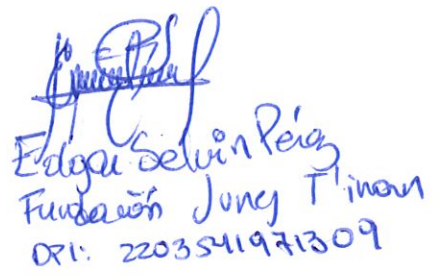 Edgar Selvin Pérez
Fundación Junej T'inam
DPI: 2203541971309